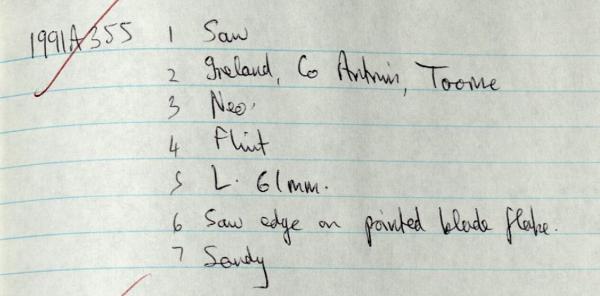 1991A355 1 Saw
2 Ireland, Co Antrim, Toome
3 Neo.
4 Flint
5 L. 61mm.
6 Saw edge on pointed blade flake.
7 Sandy